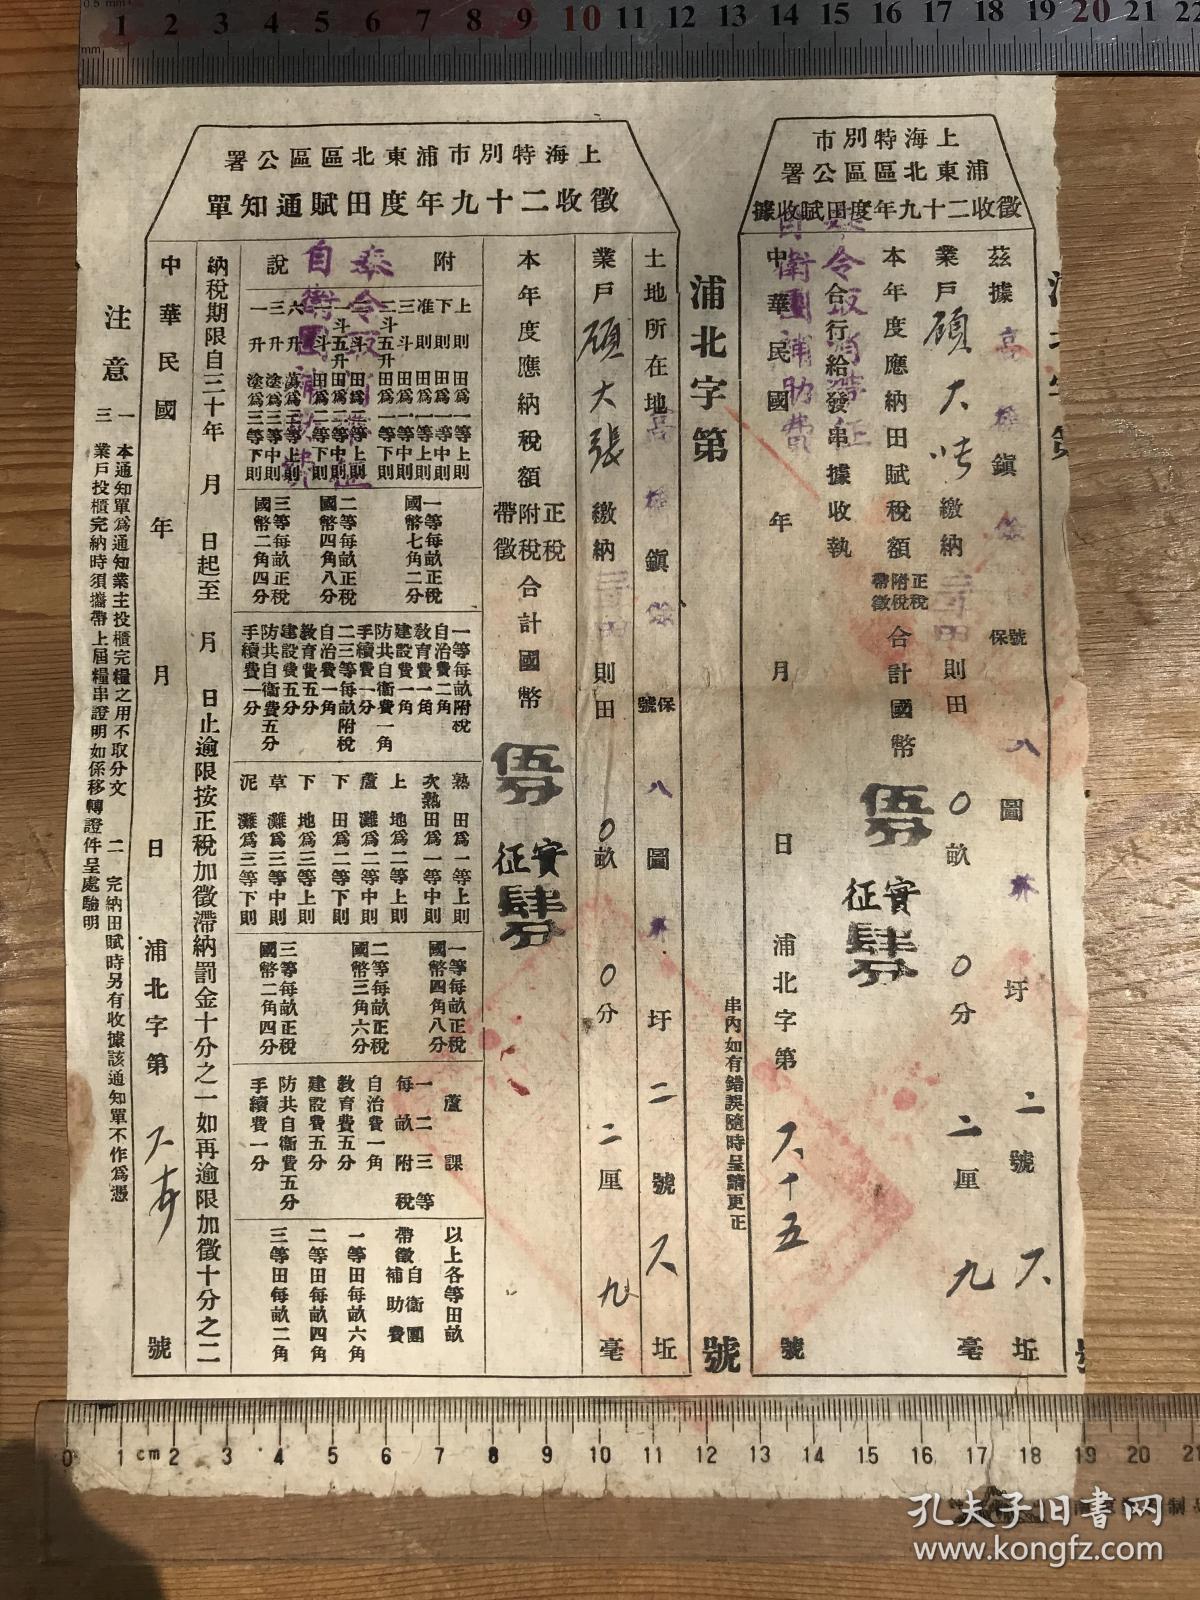 上海特別市
浦東北區區公署
徵收二十九年度田賦收據
茲據 高橋鎮 保號 八圖 圩 二號 坵
業戶 顧大 繳納 則田 〇畝 〇分 二厘 九毫
本年度應納田賦稅額 正稅 附稅 帶徵 合計國幣 伍分 實征 肆分
合行給發串據收執
奉令取消帶征
自衛團補助費
中華民國 年 月 日 浦北字第 號
串內如有錯誤隨時呈請更正
浦北字第 號
上海特別市浦東北區區公署
徵收二十九年度田賦通知單
土地所在地 高橋鎮 保號 八圖 圩 二號 坵
業戶 顧大張 繳納 則田 〇畝 〇分 二厘 九毫
本年度應納稅額 正稅 附稅 帶徵 合計國幣 伍分 實征 肆分
附說
上則田為一等上則
下則田為一等上則
准則田為一等中則
三斗田為一等中則
二斗五升田為一等下則
二斗田為二等上則
一斗五升田為二等中則
一斗田為二等下則
六升蕩為三等上則
三升塗為三等中則
一升塗為三等下則
一等每畝正稅國幣七角二分
二等每畝正稅國幣四角八分
三等每畝正稅國幣二角四分
一等每畝附稅
自治費二角
教育費一角
建設費一角
防共自衛費一角
手續費一分
二三等每畝附稅
自治費一角
教育費五分
建設費五分
防共自衛費五分
手續費一分
熟田為一等上則
次熟田為一等中則
上地為二等上則
蘆灘為二等中則
下田為二等下則
下地為三等上則
草灘為三等中則
泥灘為三等下則
一等每畝正稅國幣四角八分
二等每畝正稅國幣三角六分
三等每畝正稅國幣二角四分
蘆課
一二三等每畝附稅
自治費一角
教育費五分
建設費五分
防共自衛費五分
手續費一分
以上各等田畝
帶徵自衛團補助費
一等田每畝六角
二等田每畝四角
三等田每畝二角
奉令取消帶征
自衛團補助費
納稅期限自三十年 月 日起至 月 日止逾限按正稅加徵滯納罰金十分之一如再逾限加徵十分之二
中華民國 年 月 日 浦北字第 號
注意
一 本通知單為通知業主投櫃完糧之用不取分文 二 完納田賦時另有收據該通知單不作為憑
三 業戶投櫃完納時須攜帶上屆糧串證明如係移轉證件呈處驗明
孔夫子旧书网
www.kongfz.com